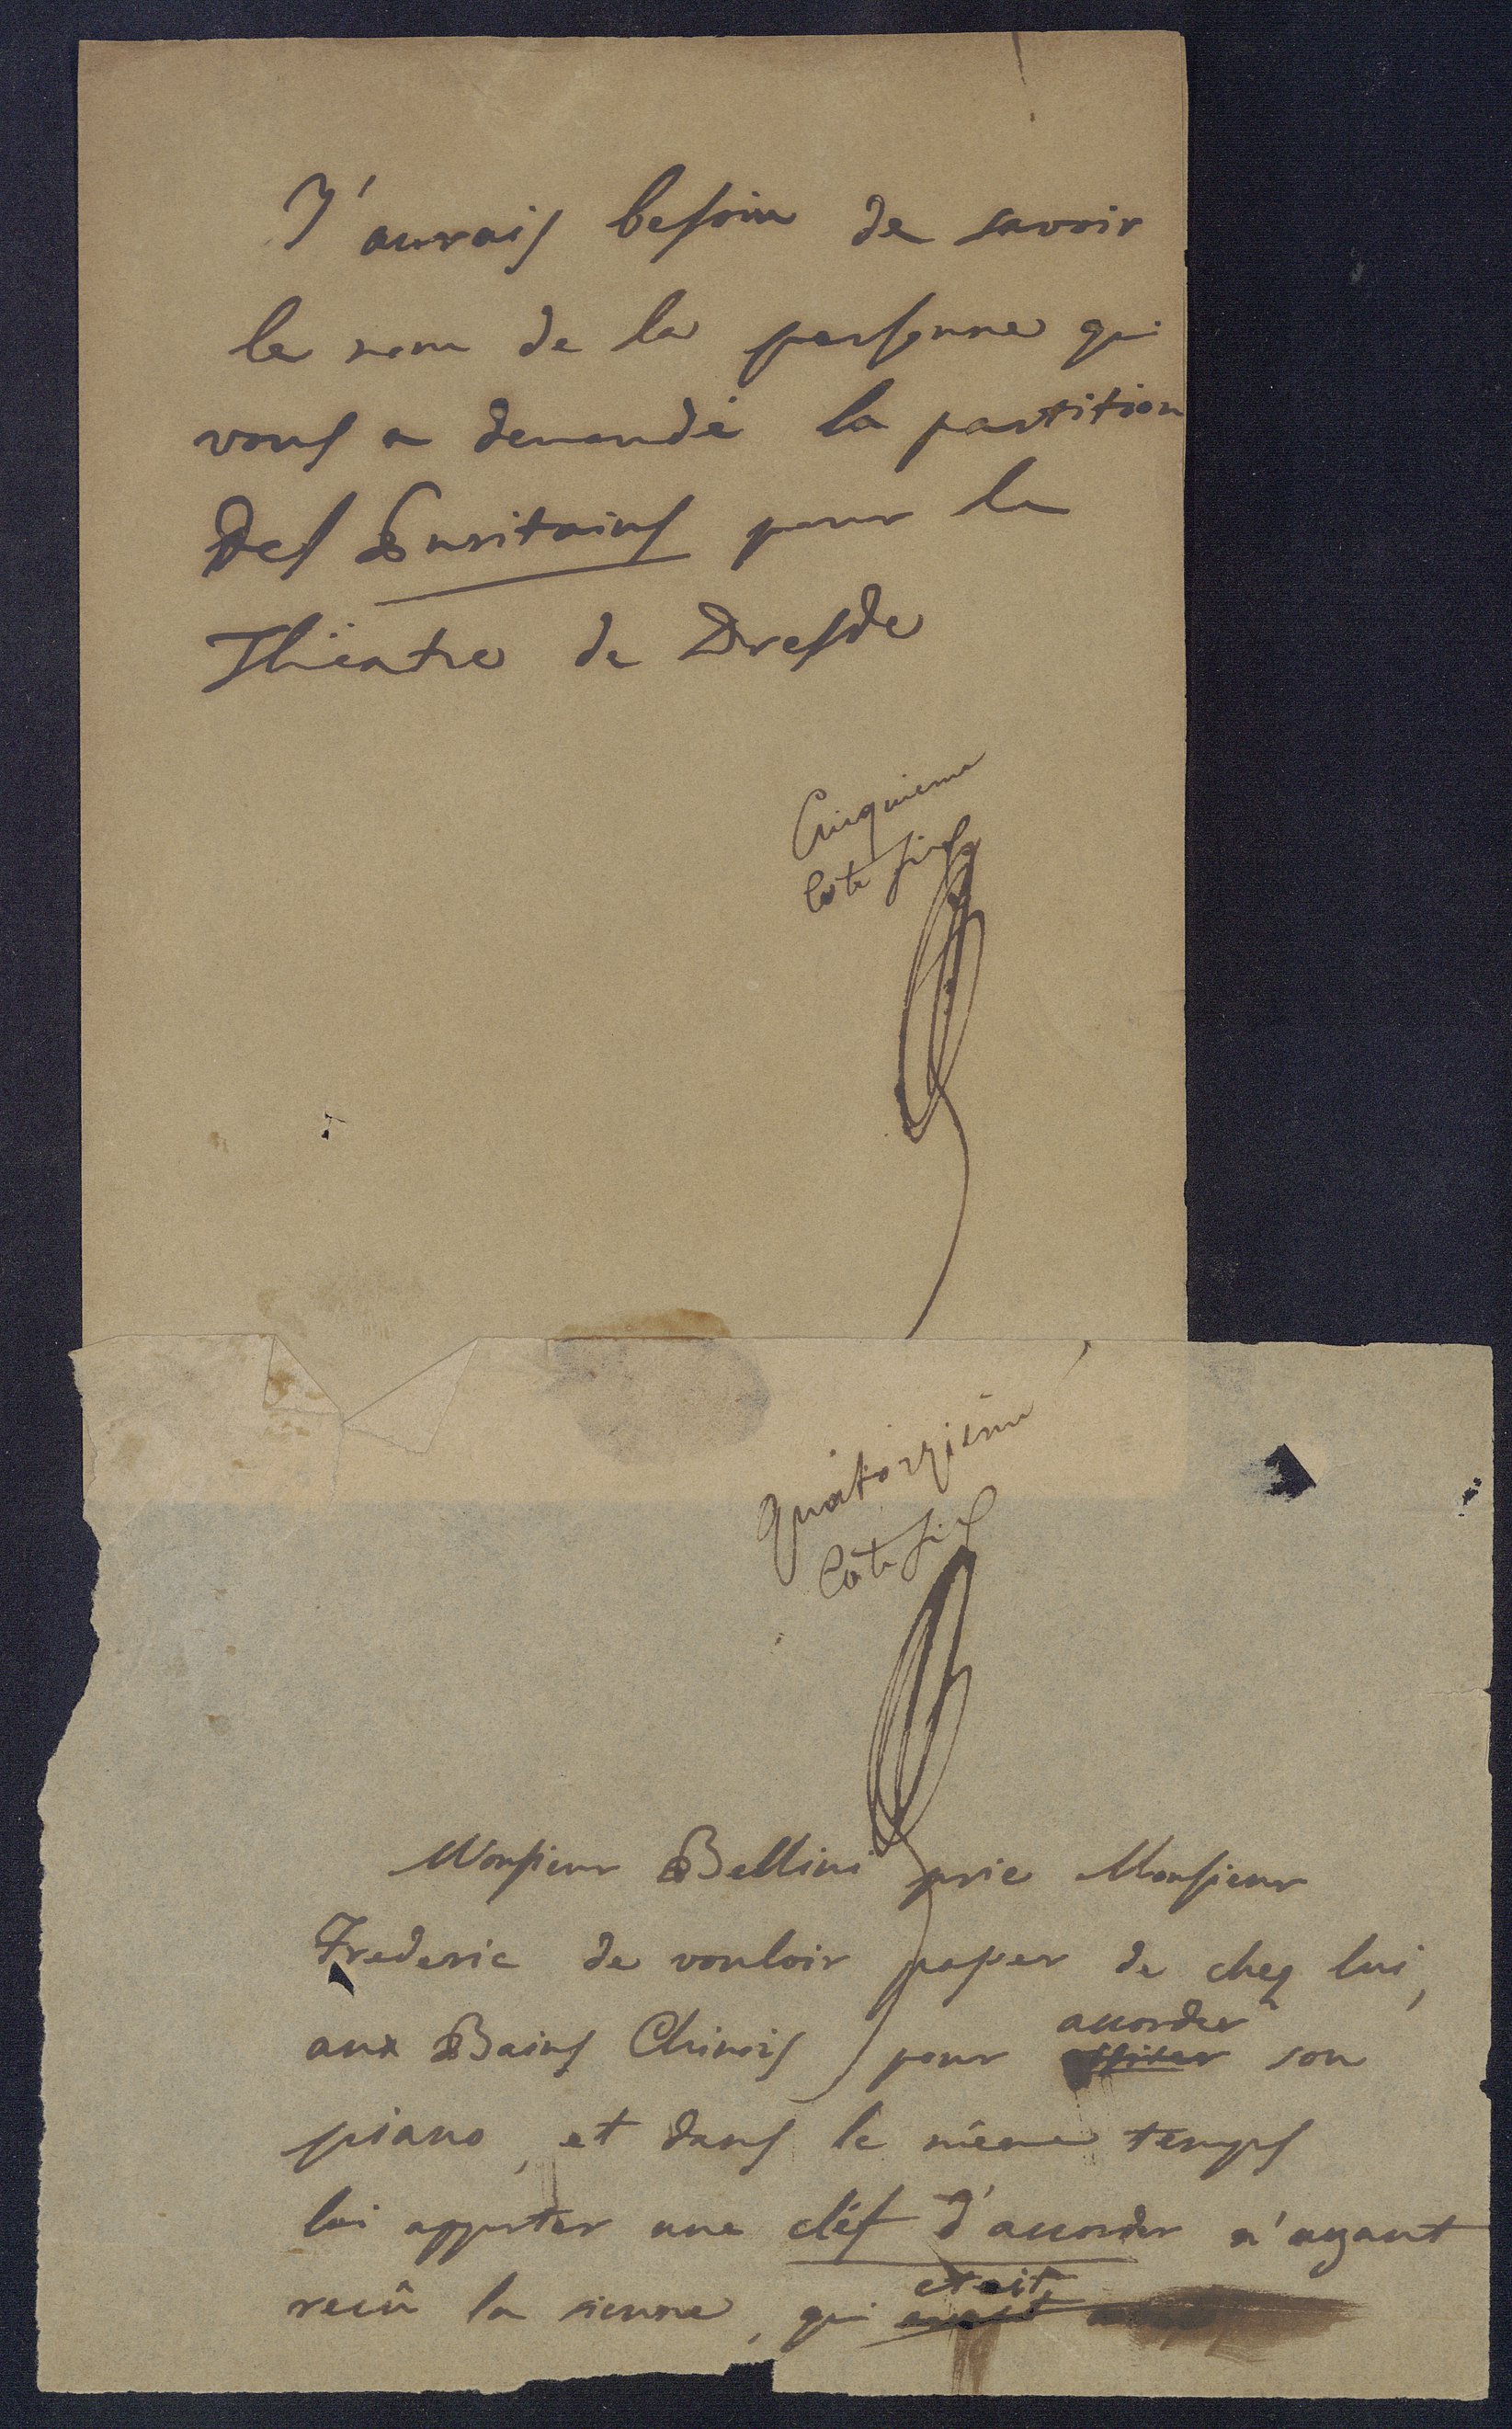 J'aurais besoin de savoir
le nom de la personne qui
vous a demandé la partition
des Puritains pour le
Théatre de Dresde
Cinquieme
Cote six
quatorzieme
Cote six
Monsieur Bellini prie Monsieur
Frederic de vouloir passer de chez lui,
aux Bains Chinois pour
accorder
son
piano, et dans le même temps
lui apporter une cléf d'accorder n'ayant
reçû la sienne, qui
etait